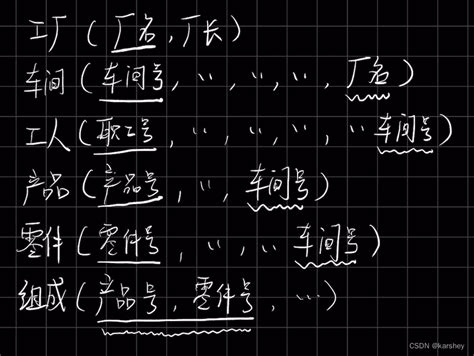 工厂（厂名，厂长）
车间（车间号，〃，〃，〃，厂名）
工人（职工号，〃，〃，〃，〃车间号）
产品（产品号，〃，车间号）
零件（零件号，〃，〃车间号）
组成（产品号，零件号，…）
CSDN @karshey